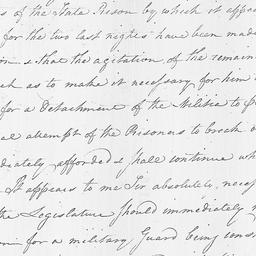 s of the State Prison by which it appea
for the two last nights have been made
on & that the agitation, of the remain
ch as to make it necessary for him
for a Detachment of the Militia to
al attempt of the Prisoners to break o
diately afforded & shall continue wh
It appears to me Sir absolutely neces
the Legislature should immediately
for a military Guard being cons